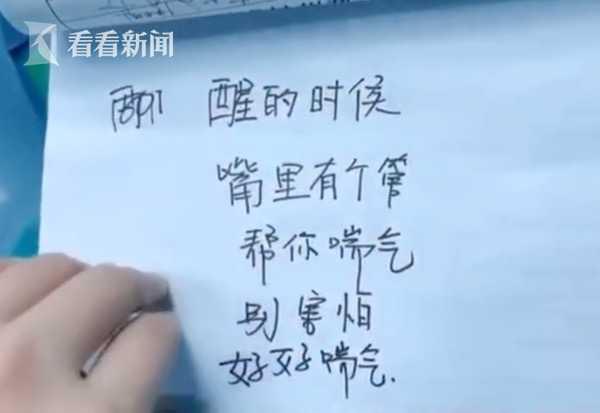 看看新闻
醒的时候
嘴里有个管
帮你喘气
别害怕
好好喘气.